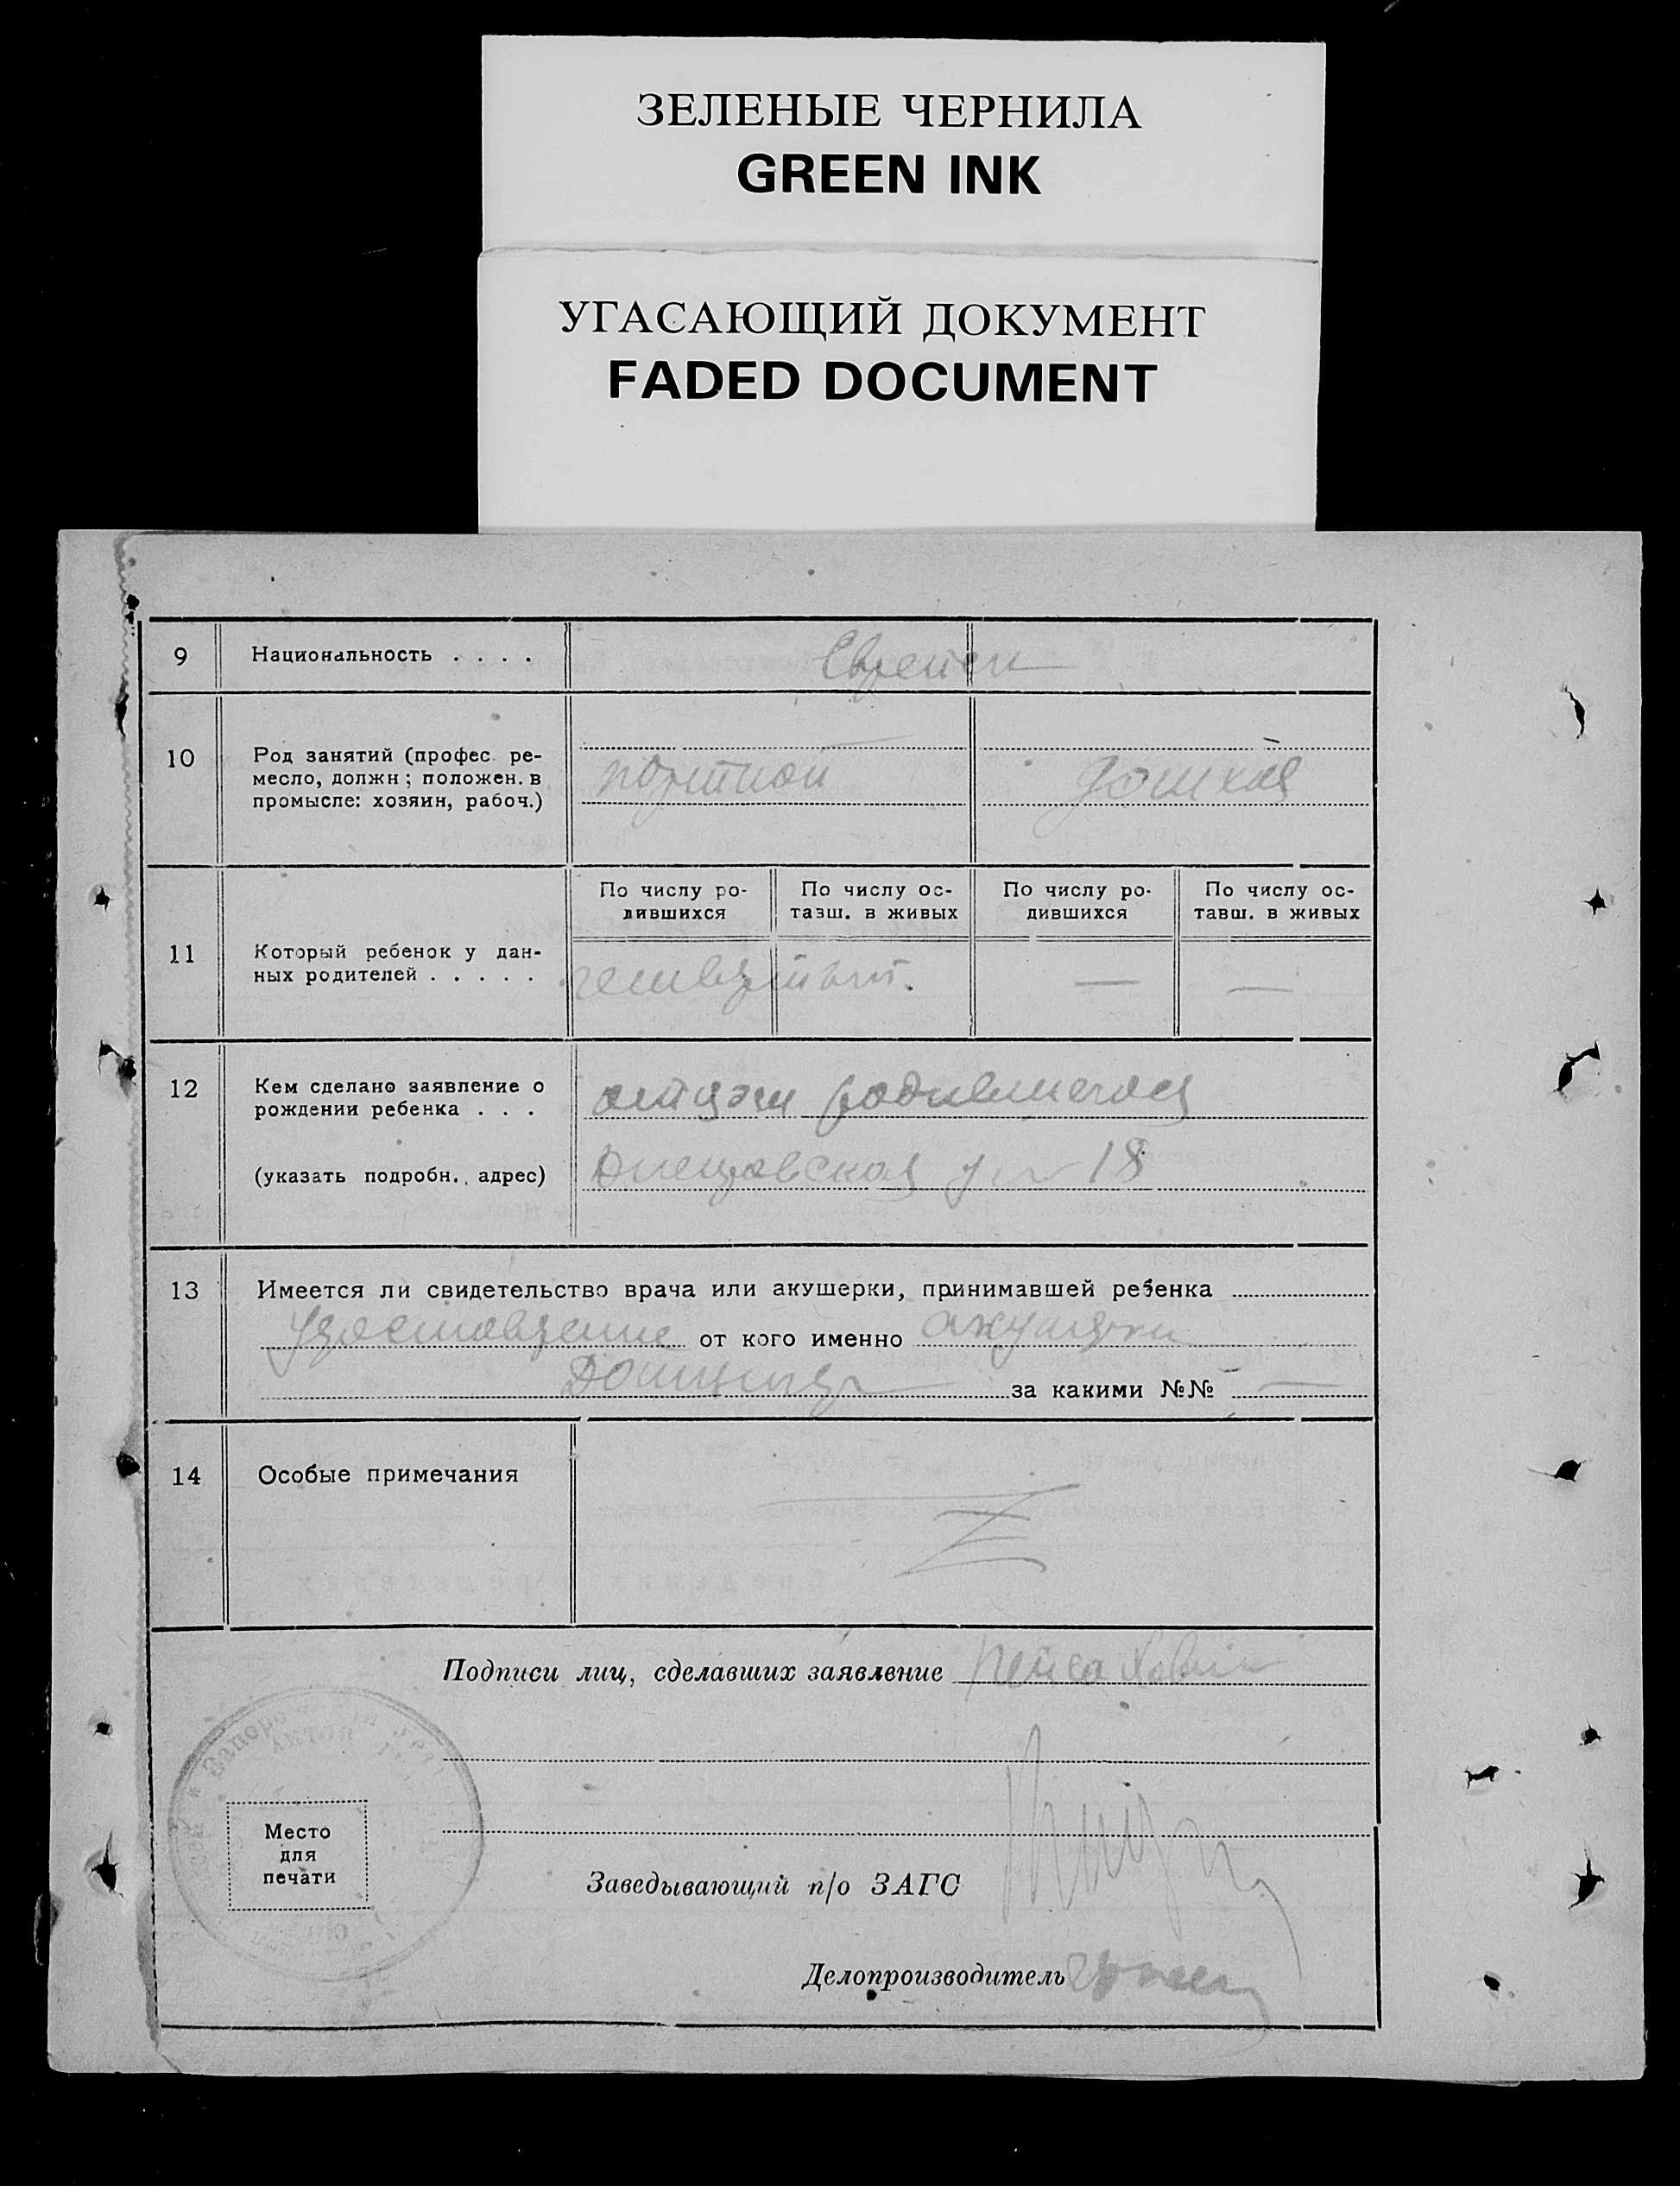 ЗЕЛЕНЫЕ ЧЕРНИЛА
GREEN INK
УГАСАЮЩИЙ ДОКУМЕНТ
FADED DOCUMENT
9 Национальность . . . . Евреи
10 Род занятий (профес. ре-
месло, должн; положен. в
промысле: хозяин, рабоч.)
портной
По числу ро-
дившихся
По числу ос-
тавш. в живых
По числу ро-
дившихся
По числу ос-
тавш. в живых
11 Который ребенок у дан-
ных родителей . . . . .
четвертый. — —
12 Кем сделано заявление о
рождении ребенка . . .
отцом родившегося
(указать подробн., адрес)
Днепровская 18
13 Имеется ли свидетельство врача или акушерки, принимавшей ребенка
от кого именно акушерки
за какими №№ —
14 Особые примечания
Подписи лиц, сделавших заявление
Место
для
печати
Заведывающий п/о ЗАГС
Делопроизводитель